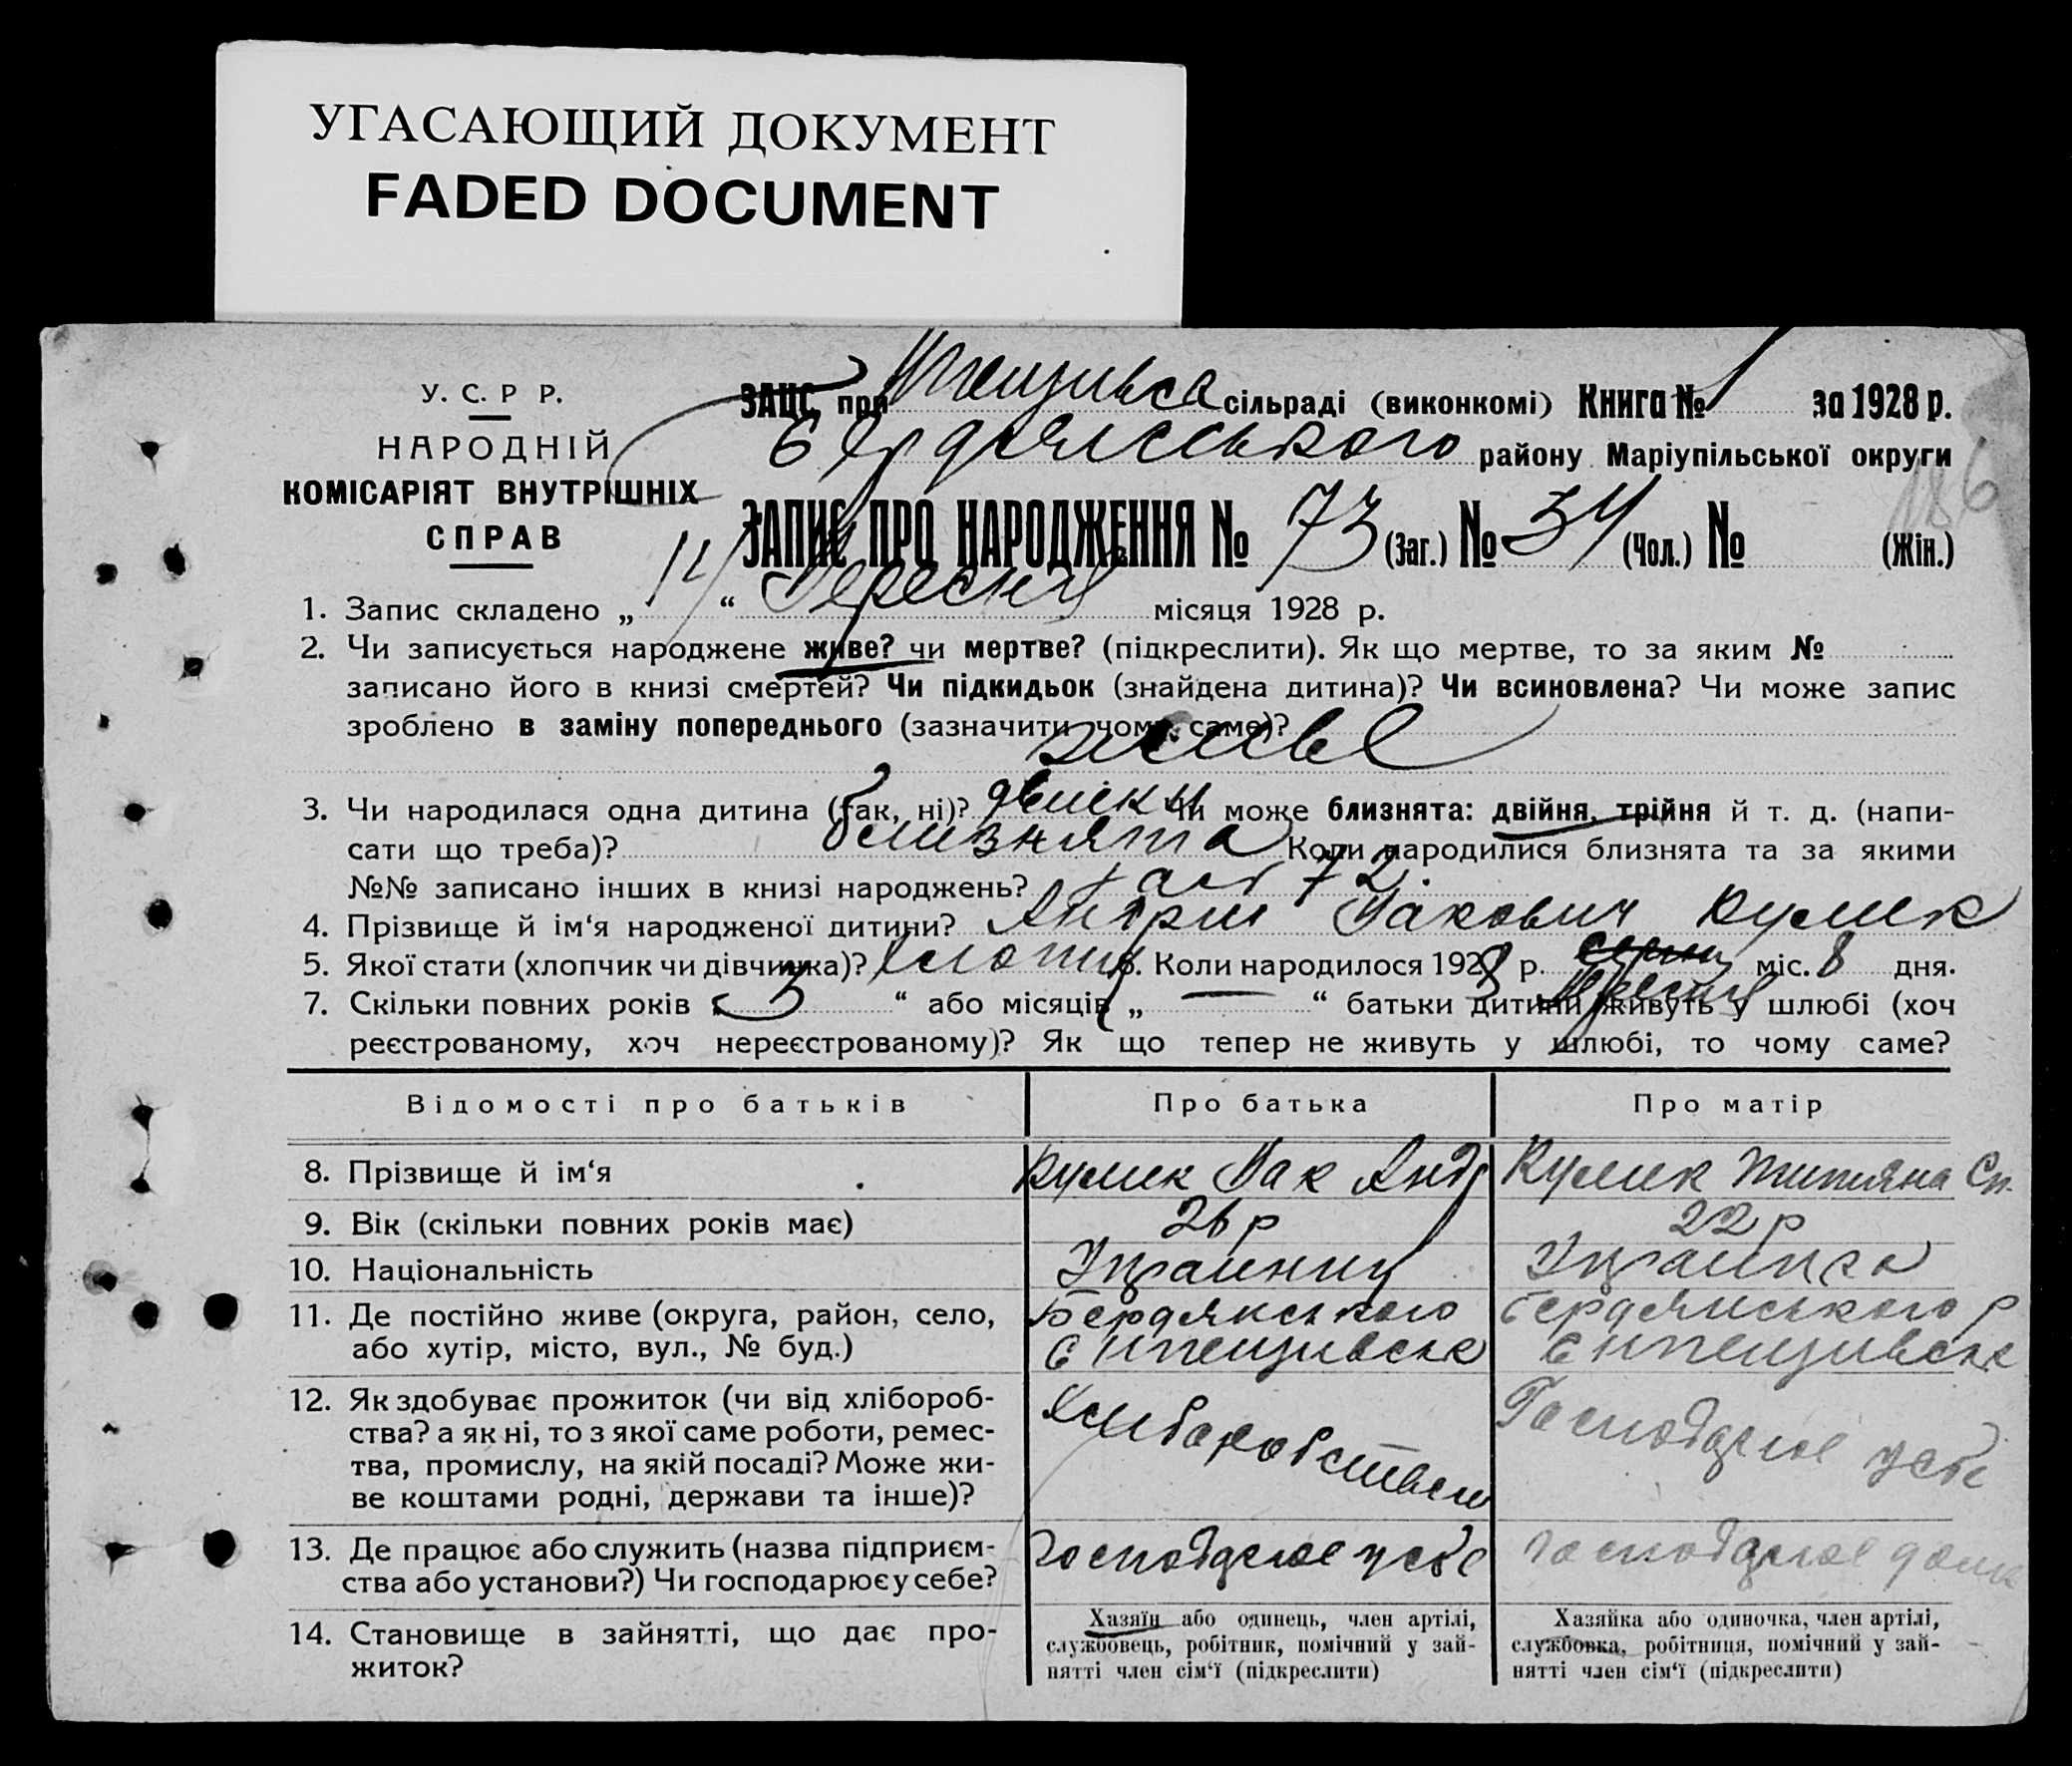 УГАСАЮЩИЙ ДОКУМЕНТ
FADED DOCUMENT
У. С. Р Р.
НАРОДНІЙ
КОМІСАРІЯТ ВНУТРІШНІХ
СПРАВ
ЗАЦС при сільраді (виконкомі) Книга № 1 за 1928 р.
Бердянського району Маріупільської округи
186
ЗАПИС ПРО НАРОДЖЕННЯ № 73 (Заг.) № 34 (Чол.) № (Жін.)
1. Запис складено „ 14 “ Вересня місяця 1928 р.
2. Чи записується народжене живе? чи мертве? (підкреслити). Як що мертве, то за яким №
записано його в книзі смертей? Чи підкидьок (знайдена дитина)? Чи всиновлена? Чи може запис
зроблено в заміну попереднього (зазначити чому саме)?
живе
3. Чи народилася одна дитина (так, ні)? двійки Чи може близнята: двійня, трійня й т. д. (напи-
сати що треба)? близнята Коли народилися близнята та за якими
№№ записано інших в книзі народжень? 72
4. Прізвище й ім‘я народженої дитини? Андрій Якович Кулик
5. Якої стати (хлопчик чи дівчинка)? хлопчик 6. Коли народилося 1928 р. серпня Вересня міс. 8 дня.
7. Скільки повних років „ 3 “ або місяців „ — “ батьки дитини живуть у шлюбі (хоч
реєстрованому, хоч нереєстрованому)? Як що тепер не живуть у шлюбі, то чому саме?
Відомості про батьків Про батька Про матір
8. Прізвище й ім‘я Кулик Як Анд Кулик Титяна Сп.
9. Вік (скільки повних років має) 26 р 22 р
10. Національність Украинец Украинка
11. Де постійно живе (округа, район, село, Бердянського Бердянського р
або хутір, місто, вул., № буд.)
12. Як здобуває прожиток (чи від хлібороб-
ства? а як ні, то з якої саме роботи, ремес- Хлиборобством Господарює у себе
тва, промислу, на якій посаді? Може жи-
ве коштами родні, держави та інше)?
13. Де працює або служить (назва підприєм- господарює у себе господарює дома
ства або установи?) Чи господарює у себе?
14. Становище в зайнятті, що дає про-
житок?
Хазяїн або одинець, член артілі,
службовець, робітник, помічний у зай-
нятті член сім‘ї (підкреслити)
Хазяйка або одиночка, член артілі,
службовка, робітниця, помічний у зай-
нятті член сім‘ї (підкреслити)